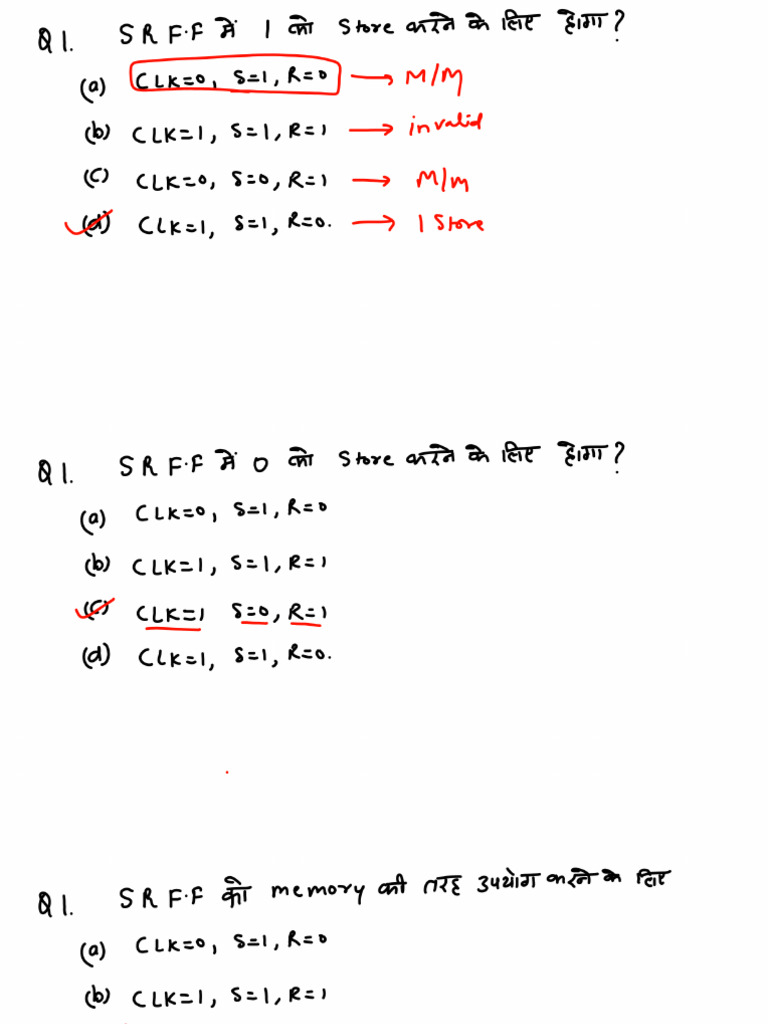 Q1. S R F.F में 1 को Store करने के लिए होगा?
(a) CLK=0, S=1, R=0 → M/M
(b) CLK=1, S=1, R=1 → invalid
(c) CLK=0, S=0, R=1 → M/M
(d) CLK=1, S=1, R=0. → 1 Store
Q1. S R F.F में 0 को Store करने के लिए होगा?
(a) CLK=0, S=1, R=0
(b) CLK=1, S=1, R=1
(c) CLK=1 S=0, R=1
(d) CLK=1, S=1, R=0.
Q1. S R F.F को memory की तरह उपयोग करने के लिए
(a) CLK=0, S=1, R=0
(b) CLK=1, S=1, R=1